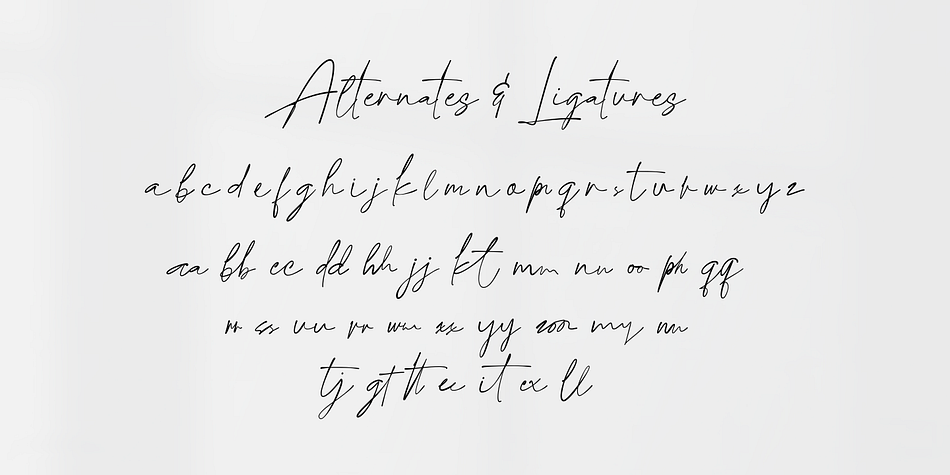 Alternates & Ligatures
a b c d e f g h i j k l m n o p q r s t u v w x y z
aa bb cc dd hh jj kt mm nn oo ph qq
rr ss uu vv ww xx yy zoo my nn
tj gt tt ee it ex ll